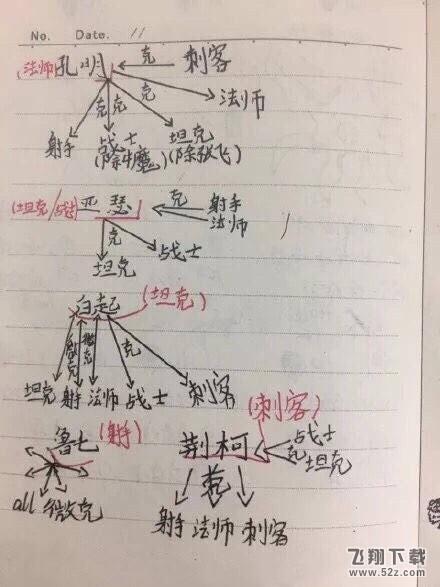 No. Date. 11
克
(法师)孔明 刺客
克 克 克 法师
射手 战士 坦克
(除牛魔) (除张飞)
(坦克/战士) 亚瑟 克 射手
法师
克
坦克 战士
白起 (坦克)
微克 微克 克
坦克 射手 法师 战士 刺客
鲁七 (射手) 荆柯 (刺客) 战士
克 坦克
all 微克 克
射手 法师 刺客
飞翔下载
www.52z.com